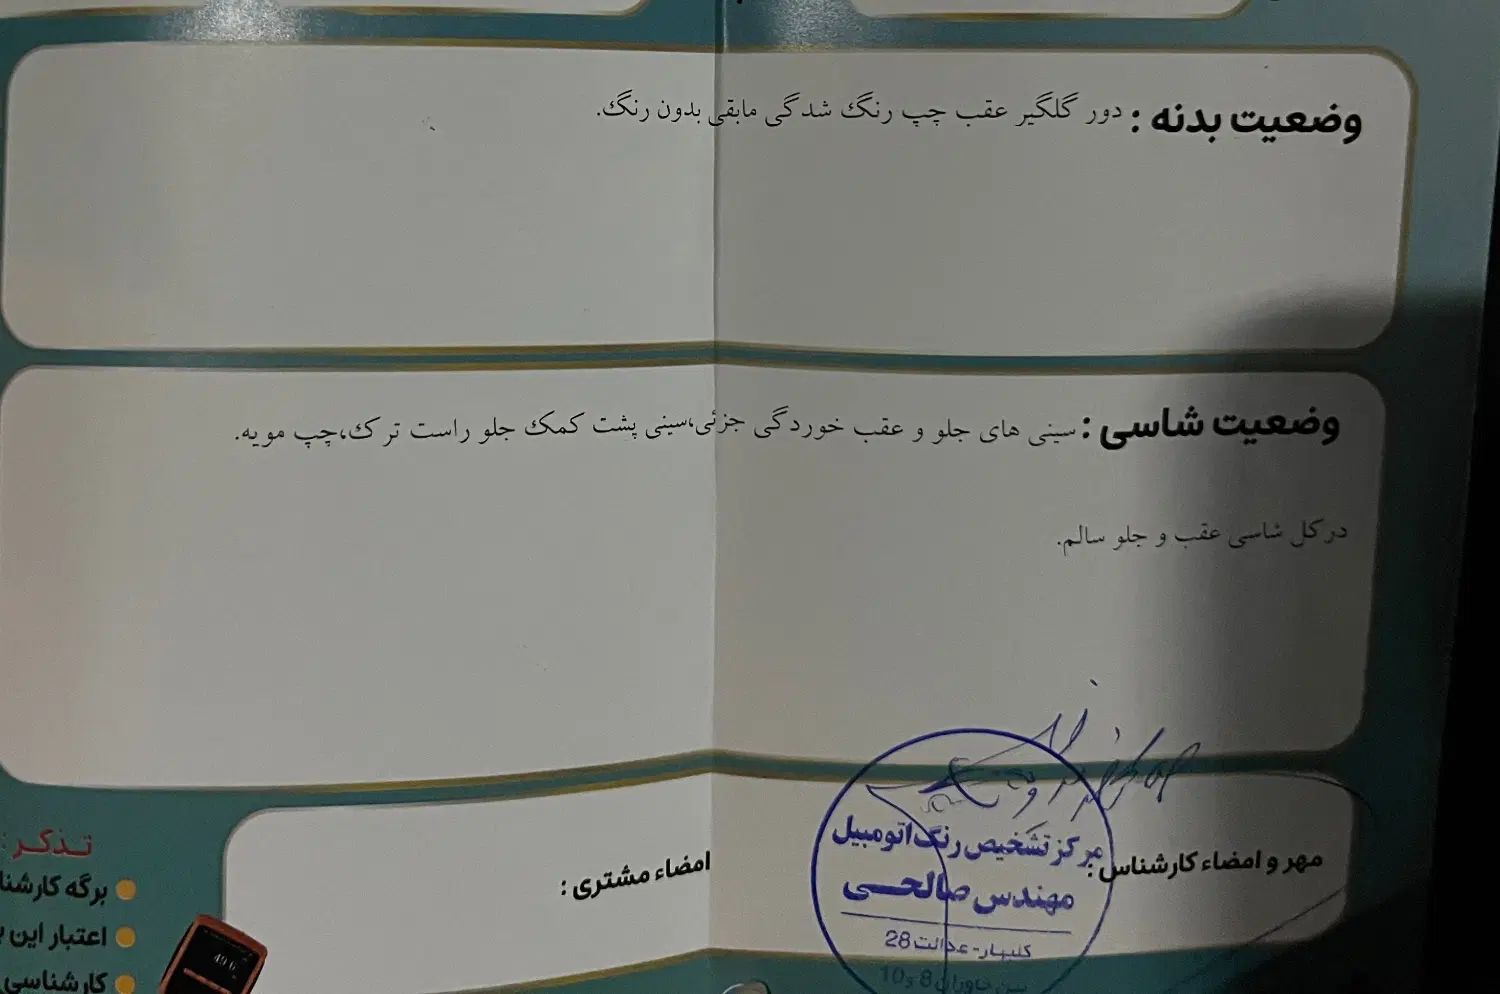 وضعیت بدنه : دور گلگیر عقب چپ رنگ شدگی مابقی بدون رنگ.
وضعیت شاسی : سینی های جلو و عقب خوردگی جزئی،سینی پشت کمک جلو راست ترک،چپ مویه.
درکل شاسی عقب و جلو سالم.
مهر و امضاء کارشناس :
مرکز تشخیص رنگ اتومبیل
مهندس صالحی
گلبهار-عدالت 28
بین خاوران 8 و10
امضاء مشتری :
تذکر :
برگه کارشنا
اعتبار این
کارشناسی